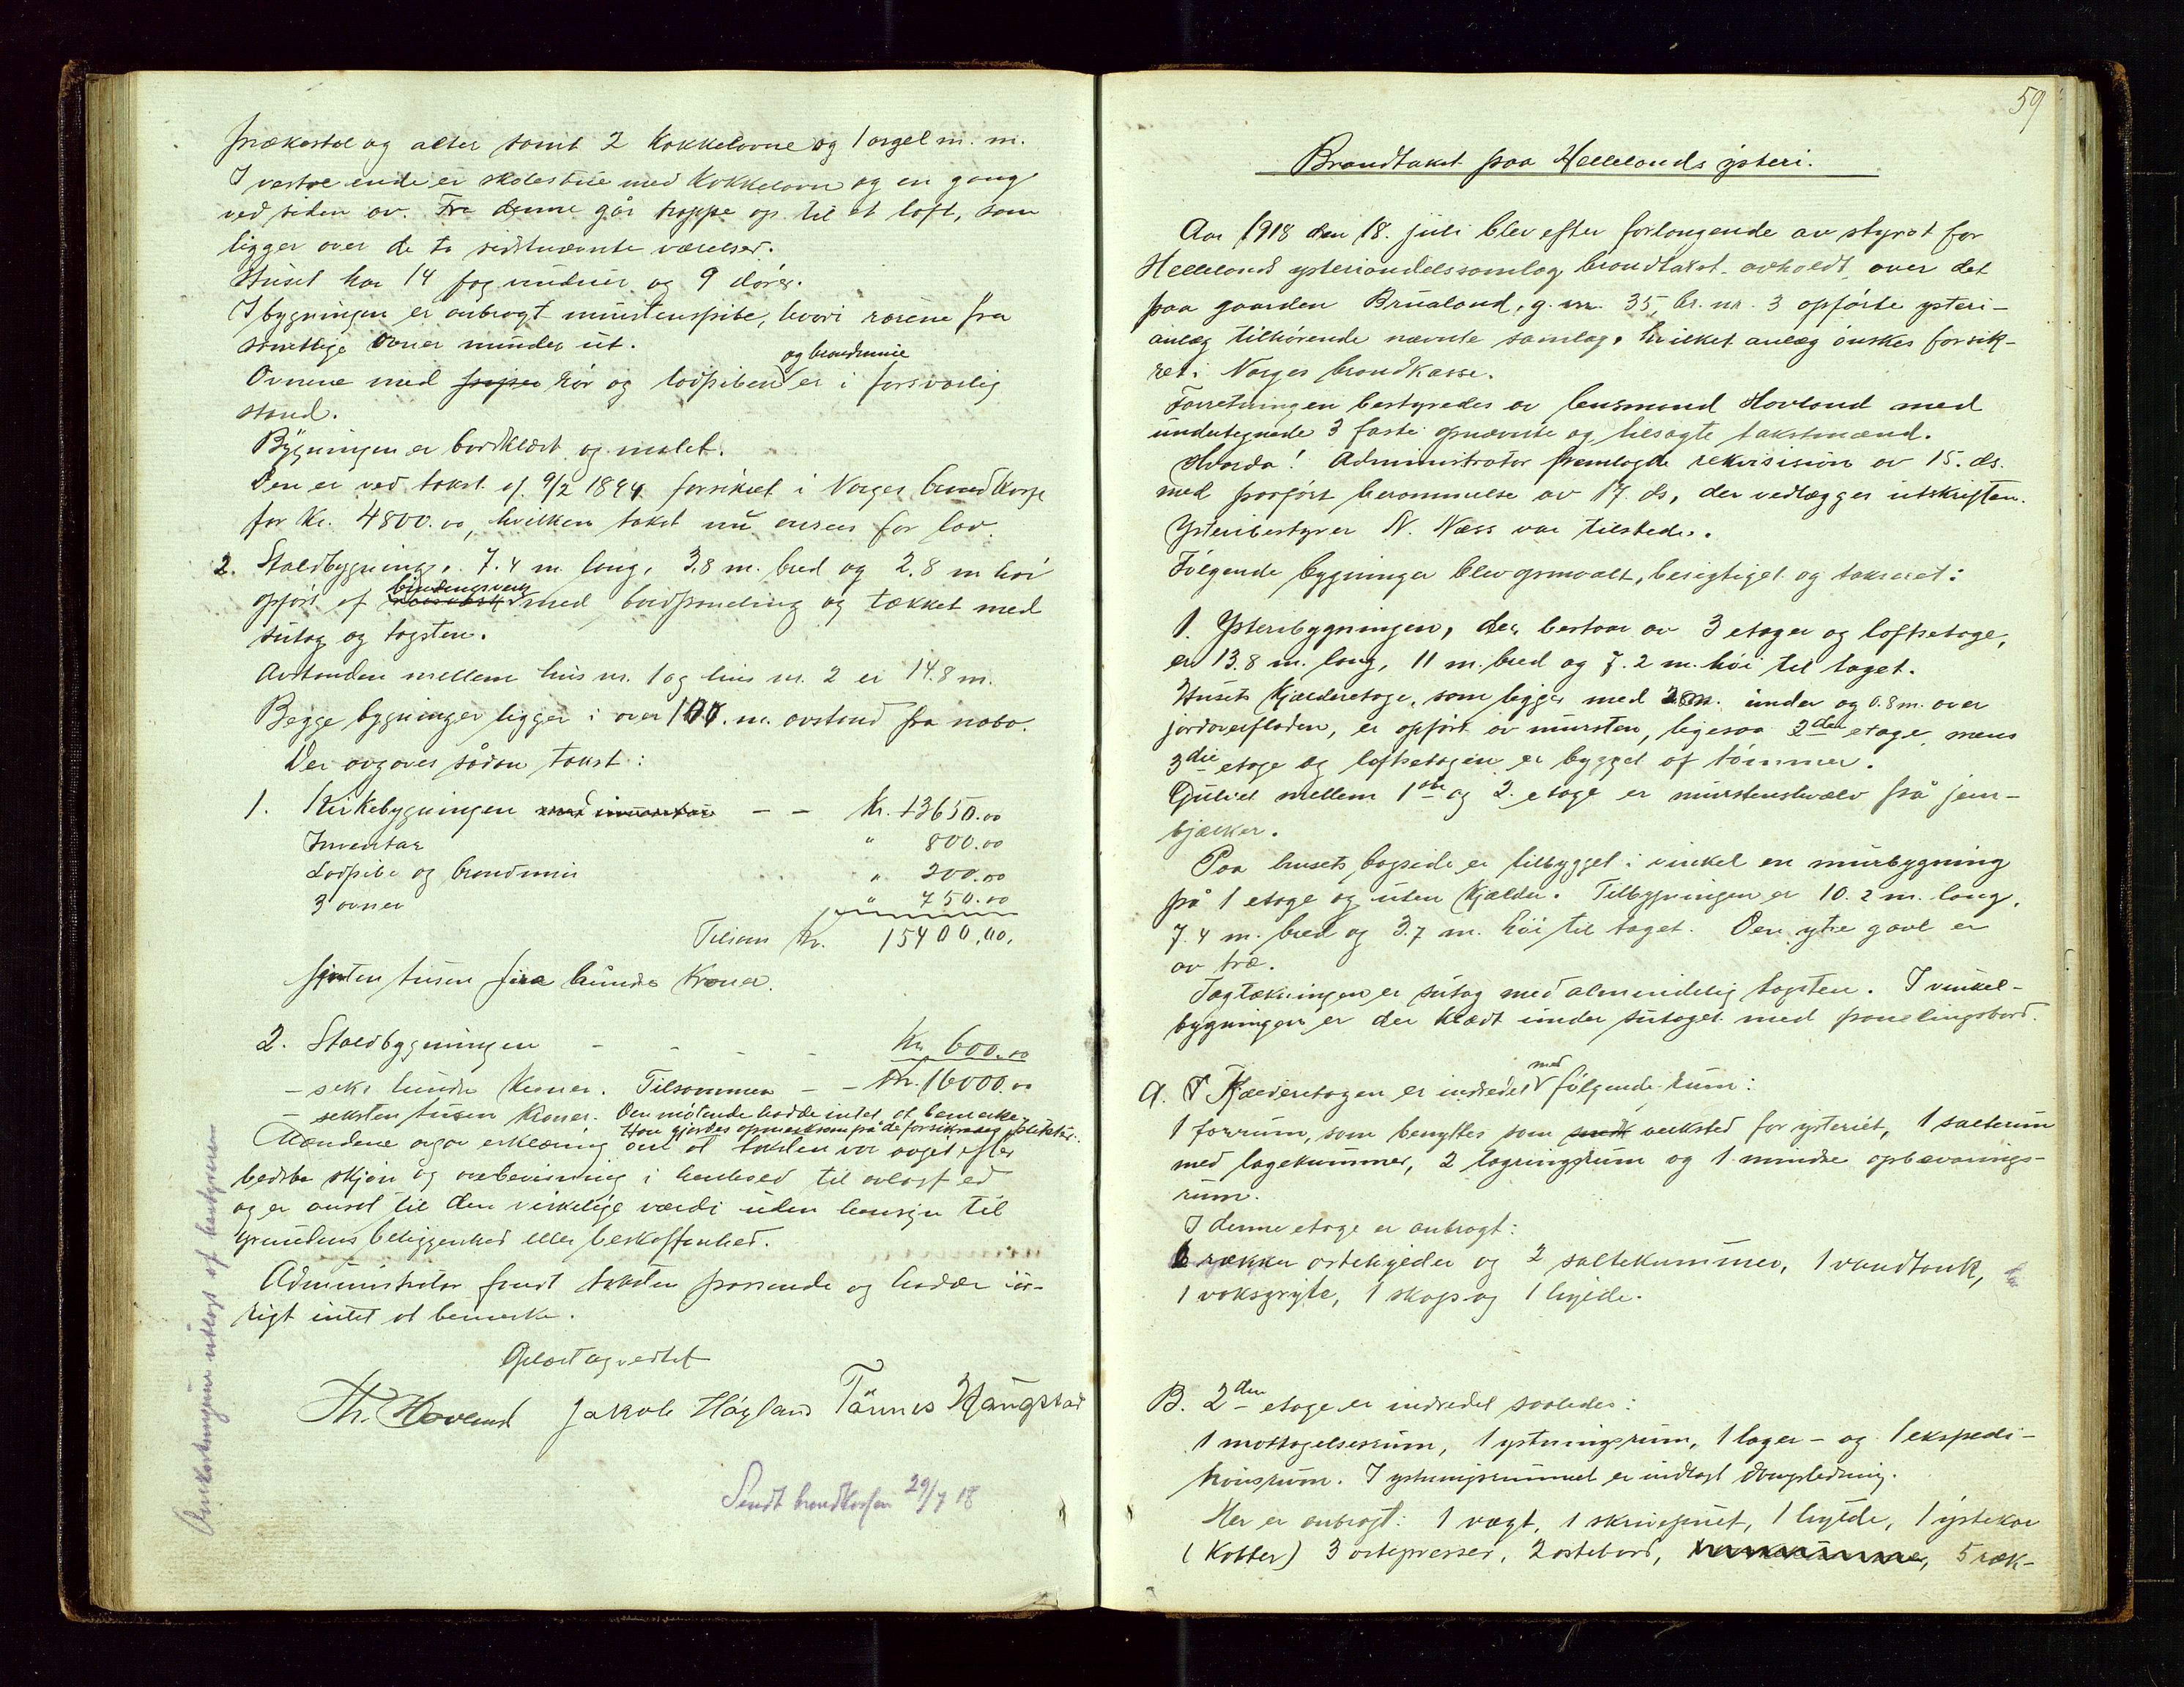 prækestol og alter samt 2 kokkelovne og 1 orgel m. m.
I vestre ende er skolestue med kokkelovn og en gang
ved siden av. Fra denne går trappe op til et loft, som
ligger over de to sidstnævnte værelser.
Huset har 14 fag vinduer og 9 dører.
I bygningen er anbragt murstenspibe, hvori rørene fra
samtlige ovner munder ut.
og brandmure
Ovnene med piper rør og lodpiben er i forsvarlig
stand.
Bygningen er bordklædt og malet.
Den er ved takst af 9/2 1894 forsikret i Norges brandkasse
for kr. 4800.00, hvilken takst nu ansees for lav.
2. Staldbygning. 7.4 m. lang, 3.8 m. bred og 2.8 m høi
bindingsverk
opført af med bordpaneling og tækket med
sutag og tagsten.
Avstanden mellem hus nr. 1 og hus nr. 2 er 14.8 m.
Begge bygninger ligger i over 100 m. avstand fra nabo.
Der avgaves sådan takst:
1. Kirkebygningen med inventar - - kr. 13650.00
Inventar " 800.00
Lodpibe og brandmur " 200.00
3 ovner " 750.00
Tilsam kr. 15400.00.
femten tusen fire hundre kroner.
2. Staldbygningen - - - - kr. 600.00
- seks hundre kroner. Tilsammen - - kr. 16000.00
- seksten tusen kroner. Den møtende hadde intet at bemerke.
Han gjordes opmerksom på de forsikredes plikter.
Mændene avgav erklæring om at taksten var avgit efter
bedste skjøn og overbevisning i henhold til avlagt ed
og er ansat til den virkelige værdi uten hensyn til
grundens beliggenhed eller beskaffenhed.
Administrator fandt taksten passende og hadde iør-
rigt intet at bemerke.
Oplæst og vedtat
Th. Hovland Jakob Høgland Tønnes Haugstad
Sendt brandkassen 29/7 18
Omkostningene utlagt af bestyreren
59
Brandtakst paa Hellelands ysteri.
Aar 1918 den 18. juli blev efter forlangende av styret for
Hellelands ysteriandelssamlag brandtakst avholdt over det
paa gaarden Brualand, g. nr. 35, br. nr. 3 opførte ysteri-
anlæg tilhørende nævnte samlag, hvilket anlæg ønskes forsik-
ret i Norges brandkasse.
Forretningen bestyredes av lensmand Hovland med
undertegnede 3 faste opnævnte og tilsagte takstmænd.
Hvorda! Administrator fremlagde rekvisision av 15. ds.
med paaført berammelse av 17. ds, der vedlægges utskriften.
Ysteribestyrer N. Næss var tilstede.
Følgende bygninger blev opmaalt, besigtiget og takseret:
1. Ysteribygningen, der bestaar av 3 etager og loftsetage,
er 13.8 m. lang, 11 m. bred og 7.2 m. høi til taget.
Husets kjælderetage, som ligger med 2 m. under og 0.8 m. over
jordoverfladen, er opført av mursten, ligesaa 2den etage, mens
3die etage og loftsetagen er bygget af tømmer.
Gulvet mellem 1ste og 2. etage er murstenshvælv på jern-
bjælker.
Paa husets bagside er tilbygget i vinkel en murbygning
på 1 etage og uten kjælder. Tilbygningen er 10.2 m. lang,
7.4 m. bred og 3.7 m. høi til taget. Den ytre gavl er
av træ.
Tagtækningen er sutag med almindelig tagsten. I vinkel-
bygningen er der klædt under sutaget med panelingsbord.
med
A. I Kjælderetagen er indredet følgende rum:
1 forrum, som benyttes som verksted for ysteriet, 1 salterum
med lagekummer, 2 lagringsrum og 1 mindre opbevarings-
rum.
I denne etage er anbragt:
6 rækker ostehylder og 2 saltekummer, 1 vandtank,
1 voksgryte, 1 skap og 1 hylde.
B. 2den etage er indredet saaledes:
1 mottagelsesrum, 1 ystningsrum, 1 lager- og 1 ekspedi-
tionsrum. I ystningsrummet er indlagt dampledning.
Her er anbragt: 1 vægt, 1 skrivepult, 1 hylde, 1 ystekar
(kobber) 3 ostepresser, 2 ostebord, 5 ræk-